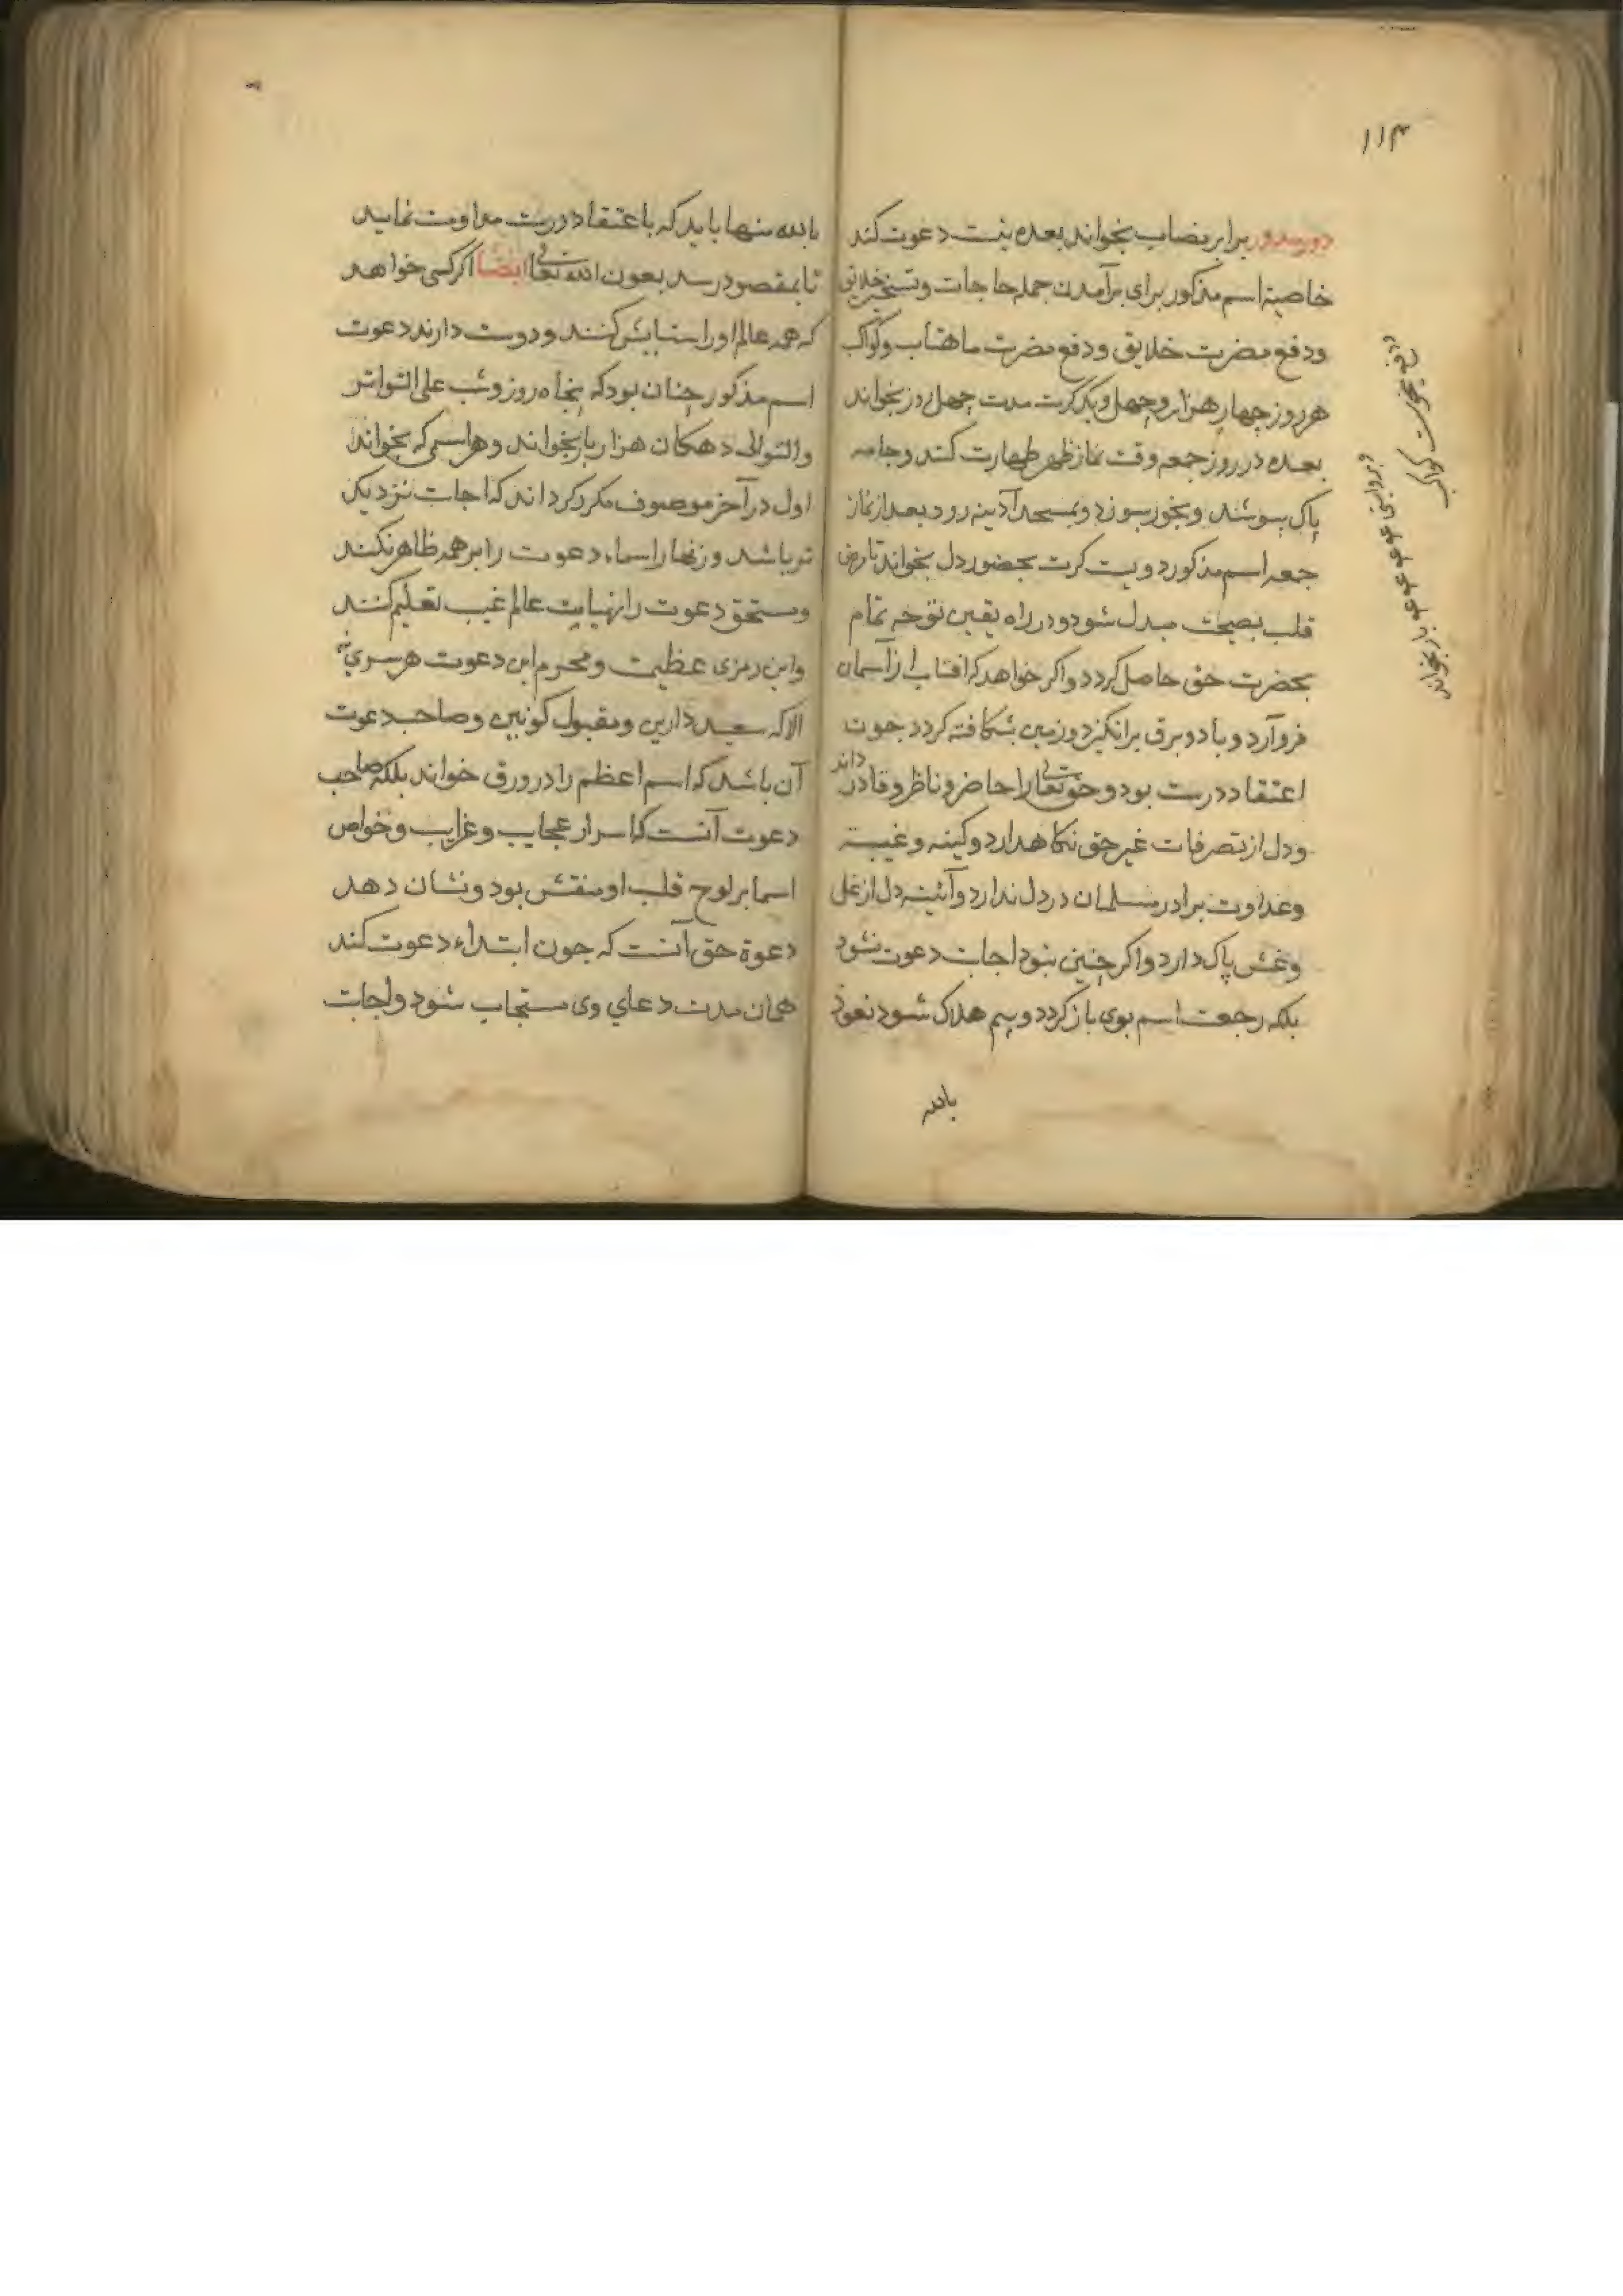 ۱۱۴
دور مدور برابر نصاب بخواند بعده بنیت دعوت کند
خاصیة اسم مذکور برای برآمدن جمله حاجات وتسخیر خلایق
ودفع مضرت خلایق ودفع مضرت ماهتاب وکواکب
هر روز چهار هزار وچهل ویک کرت مدت چهل روز بخواند
بعده در روز جمعه وقت نماز ظهر طهارت کند وجامه
پاک بپوشند وبخور بسوزد وبمسجد آدینه رود بعد از نماز
جمعه اسم مذکور دویست کرت بحضور دل بخواند تا مرض
قلب بصحت مبدل شود ودر راه یقین توجه تمام
بحضرت حق حاصل کردد واکر خواهد که افتاب از آسمان
فروآرد وباد وبرق برانکیزد وزمین بشکافته کردد جون
اعتقاد درست بود وحق تعالی را حاضر وناظر وقادر داند
ودل از تصرفات غیر حق نکاهدارد وکینه وغیبة
وعداوت برادر مسلمان در دل ندارد وآئینه دل از غل
وغش پاک دارد واکر چنین نبود اجابت دعوت نشود
بلکه رجعت اسم بوی باز کردد وبیم هلاک شود نعوذ
بالله
دفع نحوست کواکب
وبروایتی ۴۰۴۰ بار بخواند
بالله منها باید که با عتقاد درست مداومت نماید
تا بمقصود رسد بعون الله تعالی ایضا اکر کسی خواهد
که همه عالم اورا ستایش کنند ودوست دارند دعوت
اسم مذکور چنان بود که پنجاه روز وشب علی التواتر
والتوالی دهکان هزار بار بخواند وهر اسمی که بخواند
اول در آخر موصوف مکرر کرداند که اجابت نزدیک
تر باشد وزنهار اسماء دعوت را بر همه ظاهر نکنند
ومستحق دعوت را نهایت عالم غیب تعلیم کنند
واین رمزی عظیمت ومحرم این دعوت هر سری نه
الا که سعید دارین ومقبول کونین وصاحب دعوت
آن باشد که اسم اعظم را در ورق خواند بلکه صاحب
دعوت آنست که اسرار عجایب وغرایب وخواص
اسما بر لوح قلب او منقش بود ونشان دهد
دعوة حق آنست که جون ابتداء دعوت کند
همان مدت دعای وی مستجاب شود واجابت